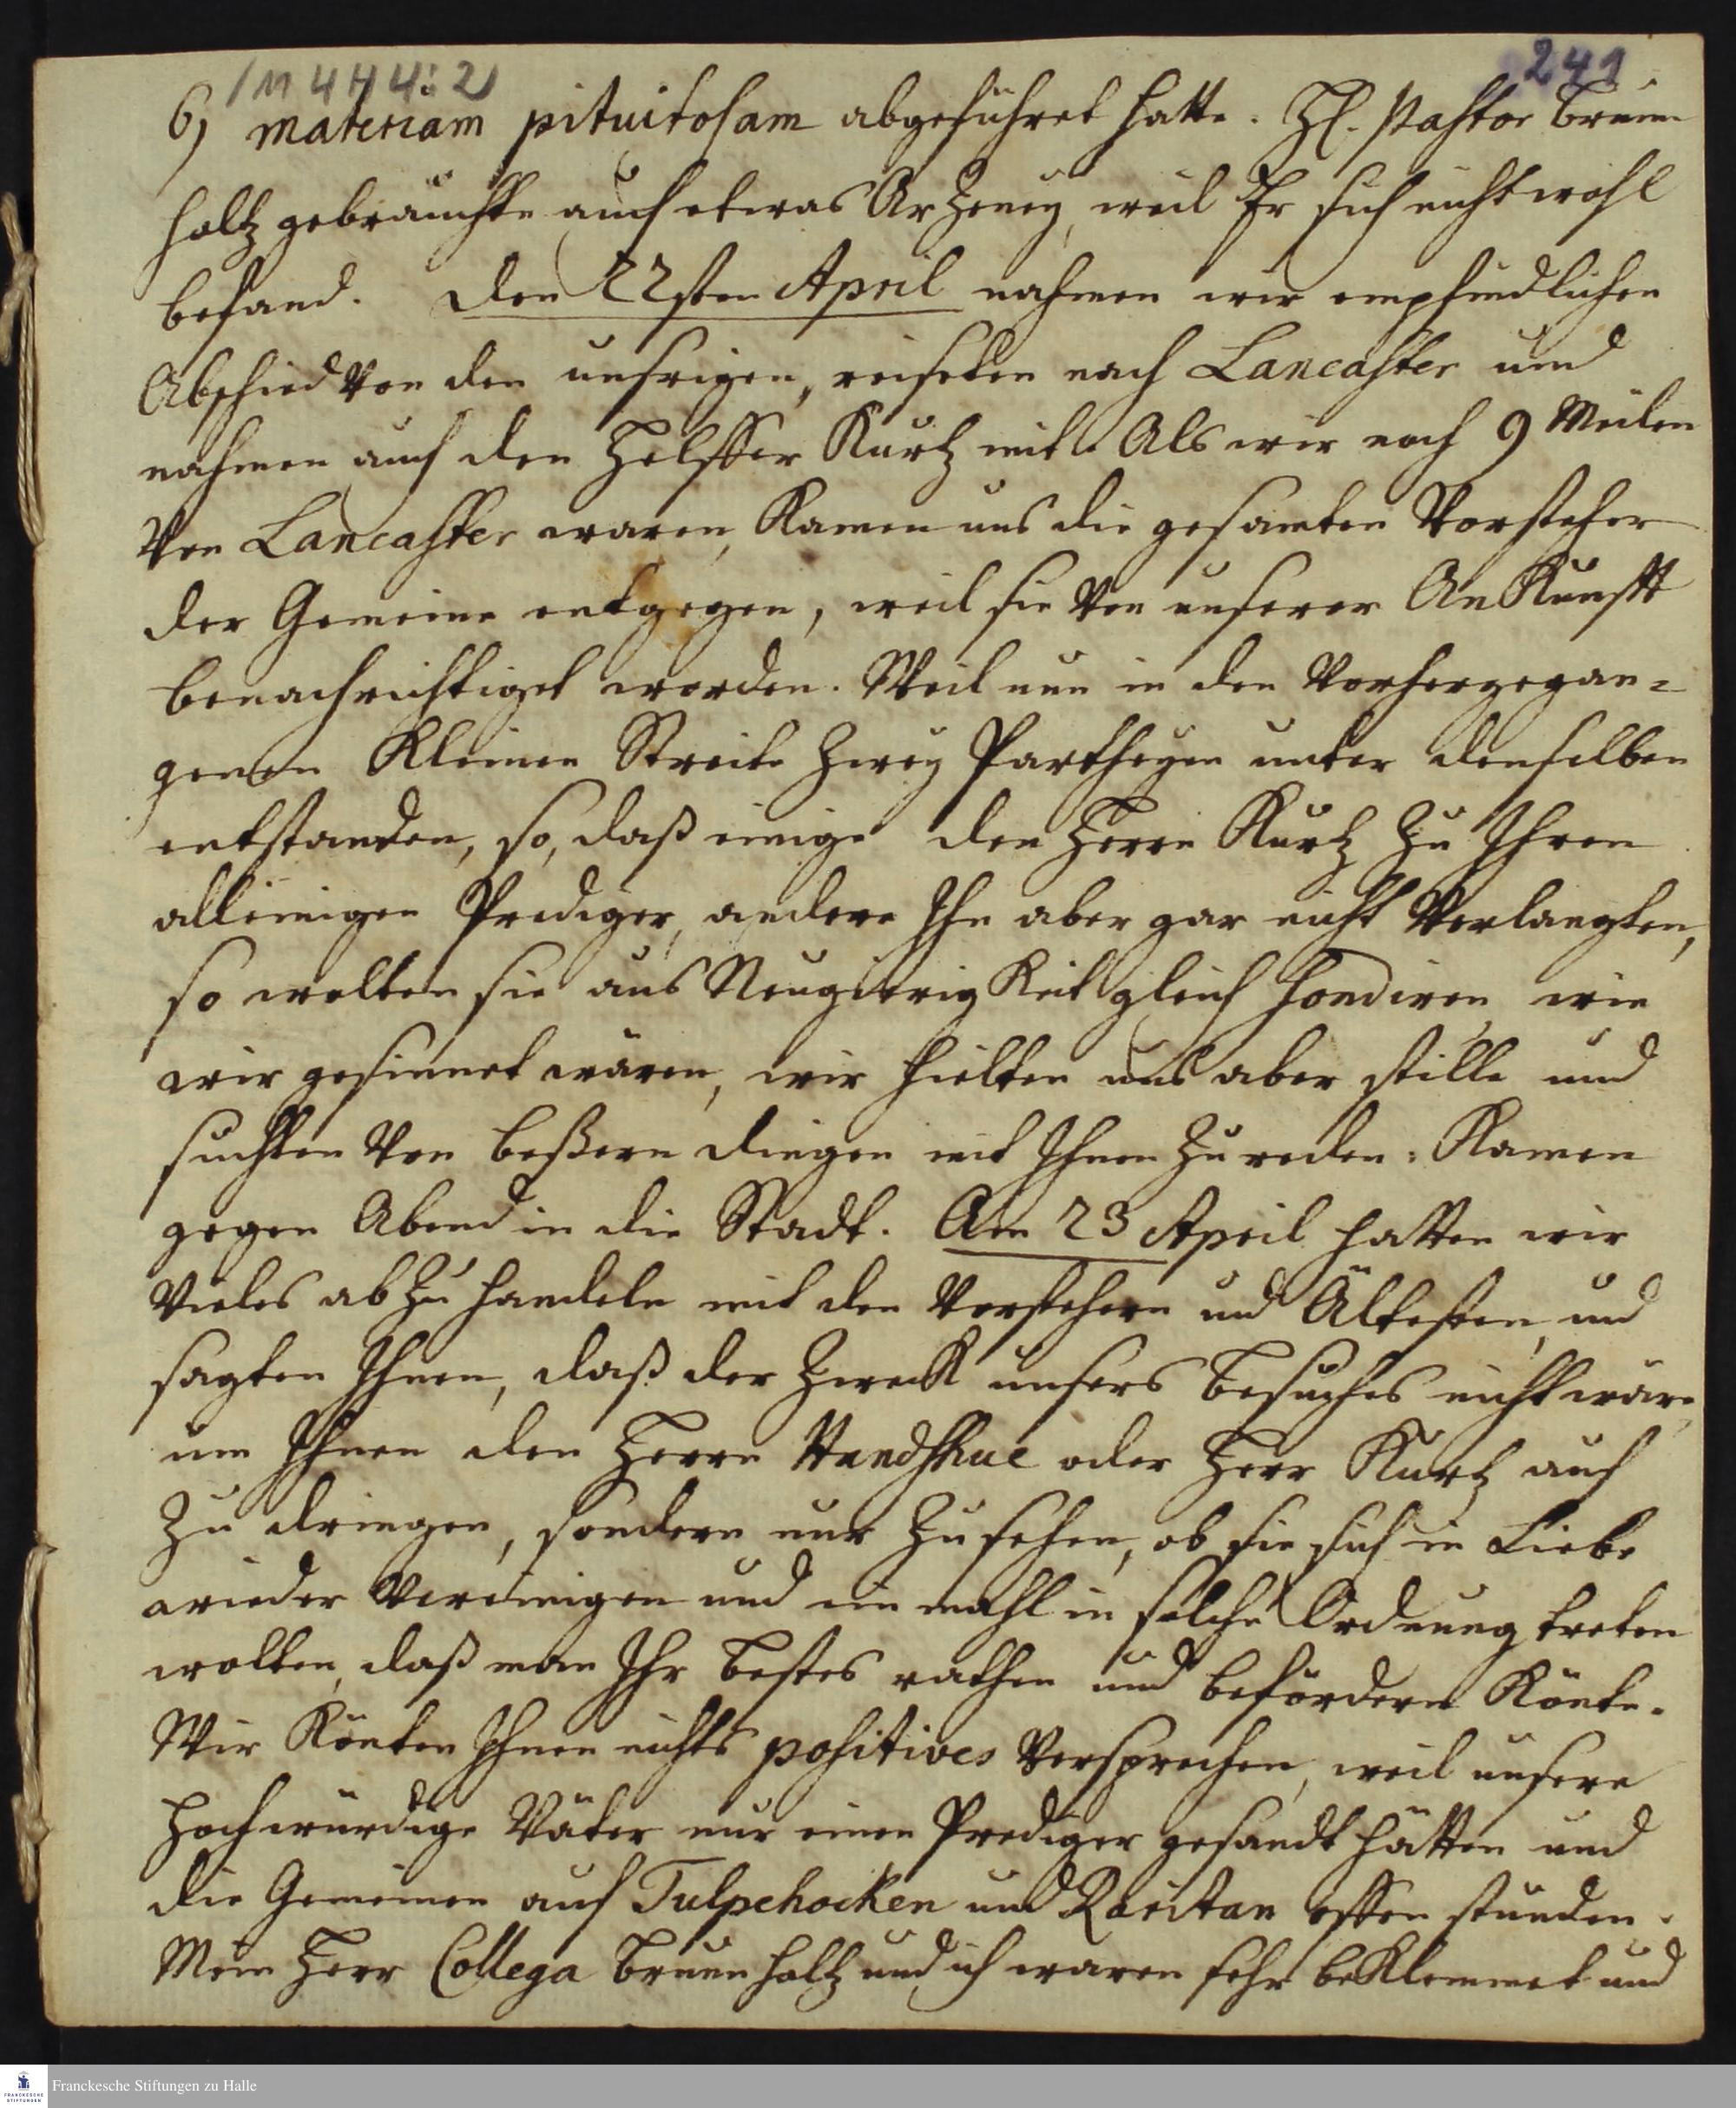 /M 4 H 4: 2/
241
6) materiam pituitosam abgeführet hatte. H. Pastor Brunn
holtz gebrauchte auch etwas Arzeney, weil Er sich nicht wohl
befand. Den 22sten April nahmen wir empfindlichen
Abschied von den unsrigen, reiseten nach Lancaster und
nahmen auch den Helffer Kurtz mit. Als wir noch 9 Meilen
von Lancaster waren, Kamen uns die gesamten Vorsteher
der Gemeine entgegen, weil sie von unserer AnKunfft
benachrichtiget worden. Weil nun in den vorhergegan=
genen Kleinen Streite zwey Partheyen unter denselben
entstanden, so, daß einige den Herrn Kurtz zu Ihren
alleinigen Prediger, andere Ihn aber gar nicht verlangten,
so wolten sie aus NeugierigKeit gleich sondiren wie
wir gesinnet wären, wir hielten uns aber stille und
suchten von beßern dingen mit Ihnen zu reden: Kamen
gegen Abend in die Stadt. Am 23 April hatten wir
vieles abzuhandeln mit den Vorstehern und Ältesten, und
sagten Ihnen, daß der ZwecK unsers Besuches nicht wäre,
um Ihnen den Herrn Handshue oder Herr Kurtz auf
zu dringen, sondern nur zu sehen, ob sie sich in Liebe
wieder vereinigen und ein mahl in solche Ordnung treten
wolten, daß man Ihr bestes rathen und befördern Könte.
Wir Könten Ihnen nichts positives versprechen, weil unsere
Hochwürdige Väter nur einen Prediger gesandt hätten und
die Gemeinen auf Tulpehocken und Raritan offen stunden.
Mein Herr Collega Brunnholtz und ich waren sehr beKlemmet und
FRANCKESCHE
STIFTUNGEN
Franckesche Stiftungen zu Halle